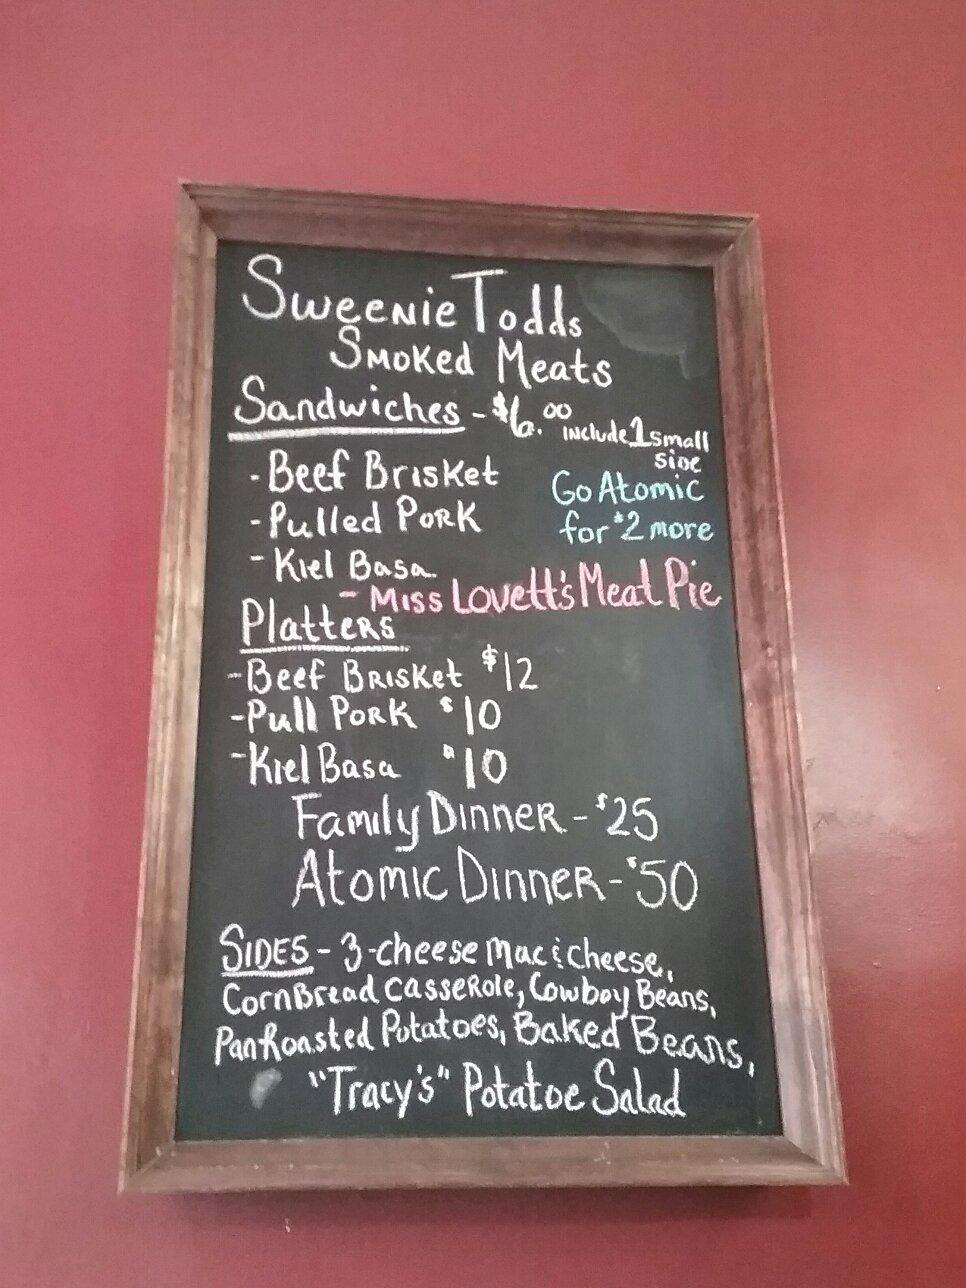 Sweenie Todds
Smoked Meats
Sandwiches - $6.00 include 1 small
side
- Beef Brisket
Go Atomic
- Pulled Pork
for $2 more
- Kiel Basa
- Miss Lovett's Meat Pie
Platters
- Beef Brisket $12
- Pull Pork $10
- Kiel Basa $10
Family Dinner - $25
Atomic Dinner - $50
Sides - 3-cheese Mac & cheese,
CornBread casserole, Cowboy Beans,
Pan Roasted Potatoes, Baked Beans,
"Tracy's" Potatoe Salad